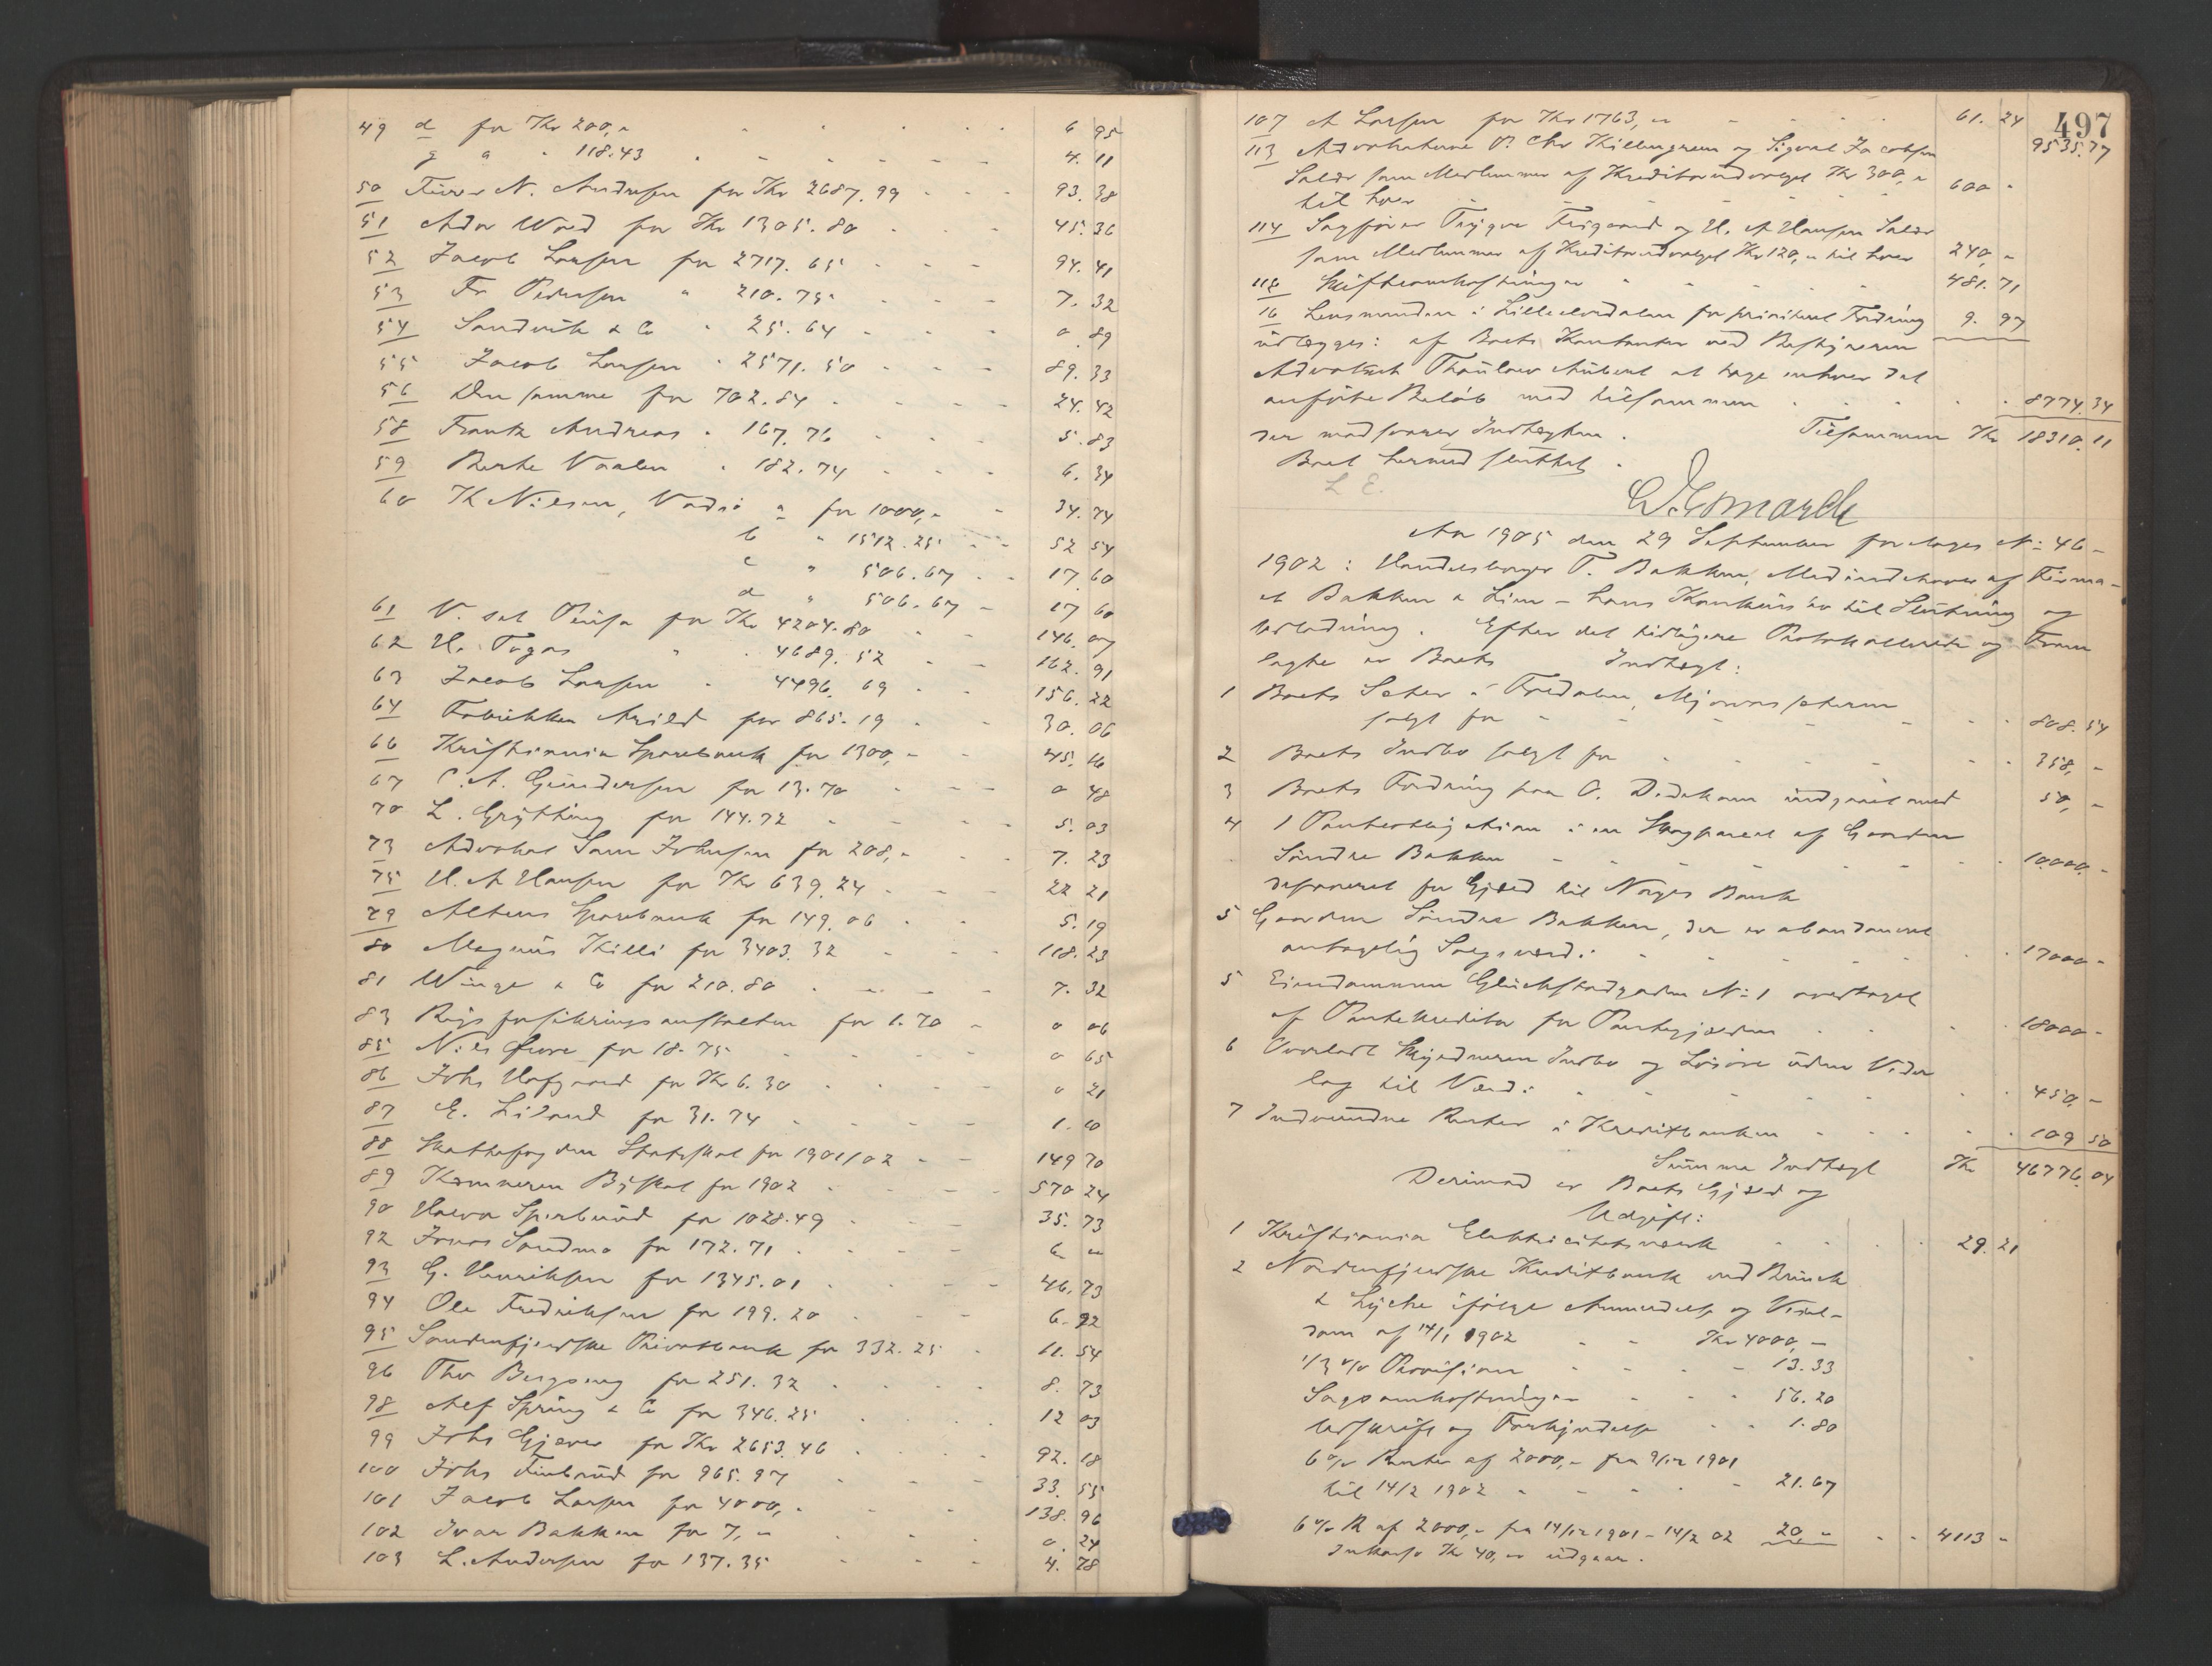 49 d for Kr 200,- 6 95
g a - 118.43 4. 11
50 Firma N. Andresen for Kr 2687.99 93. 38
51 Ada Wold for Kr 1305.80 45. 36
52 Jacob Larsen for 2717.65 94. 41
53 Fr Pedersen " 210.75 7. 32
54 Sandvik & Co " 25.64 0. 89
55 Jacob Larsen " 2571.50 89. 33
56 Den samme for 702.84 24. 42
58 Frantz Andreas " 167.76 5. 83
59 Berthe Vaalen " 182.74 6. 34
60 K Nilsen, Vadsø a for 1000,- 34. 74
b " 1512.25 52 54
c " 506.67 17. 60
d " 506.67 17 60
61 for Kr 4204.80 146. 07
62 H. " 4689.52 162. 91
63 Jacob Larsen " 4496.69 156. 22
64 Fabrikken Arild for 865.19 30. 06
66 Kristiania Sparebank for 1300,- 45. 16
67 C. A. Gundersen for 13.70 0 48
70 L. Grytting for 144.72 5. 03
73 Advokat Sam Johnsen for 208,- 7. 23
75 H. A Hansen for Kr 639.24 22 21
79 Altens Sparebank for 149.06 5. 19
80 Magnus Killi for 3403.32 118. 23
81 Winge & Co for 210.80 7. 32
83 Rigsforsikringsanstalten for 1.70 0 06
85 Nils Furre for 18.75 0 65
86 Johs Hofgaard for Kr 6.30 0 21
87 E. Liland for 31.74 1. 10
88 Skattefogden Statsskat for 1901/02 149 70
89 Kæmneren Byskat for 1902 570 24
90 Halvor for 1028.49 35. 73
92 Jonas Sandmo for 172.71 6 "
93 G. Henriksen for 1345.01 46. 73
94 Ole Fredriksen for 199.20 6. 92
95 Søndenfjeldske Privatbank for 332.25 11. 54
96 Thv Bergseng for 251.32 8. 73
98 Alf Spring & Co for 346.25 12 03
99 Johs Gjæver for Kr 2653.46 92. 18
100 Johs for 965.97 33. 55
101 Jacob Larsen for 4000,- 138. 96
102 Ivar Bakken for 7,- 0. 24
103 L. Andersen for 137.35 4. 78
497
107 A Larsen for Kr 1763,- 61. 24
9535.77
113 Advokaterne P. Chr Killengreen og Sigval Jacobsen
Salær som Medlemmer af Kreditorudvalget Kr 300,-
til hver 600 -
114 Sagfører Trygve og H. A Hansen Salær
som Medlemmer af Kreditorudvalget Kr 120,- til hver 240,-
115 Skifteomkostninger 481. 71
16 Lensmanden i Lilleelvedalen for prioritert Fordring 9. 97
udlægges: af Boets Kontanter ved Bestyreren
Advokat Thaulow Aubert at tage enhver det
anførte Beløb med tilsammen 8774. 34
der modsvarer Indtægten. Tilsammen Kr 18310. 11
Boet hermed sluttet.
L E.
Esmarch
Aar 1905 den 29 September foretages No 46-
1902: Handelsborger T. Bakken, Medindehaver af Firma-
et Bakken & Lien - hans Konkursbo til Slutning og
Udlodning. Efter det tidligere Protokollerede og Frem
lagte er Boets Indtægt:
1 Boets Sæter i Foldalen,
solgt for 808. 54
2 Boets Indbo solgt for 358,-
3 Boets Fordring paa O. Dedekam indgaaet med 50,-
4 1 Pantobligation i en Skogparcel af Gaarden
Søndre Bakken 10000,-
deponeret for Gjæld til Norges Bank
5 Gaarden Søndre Bakken, der er abandoneret
antagelig Salgsværdi: 17000 -
5 Eiendommen Glückstadgaden No 1 overtaget
af Pantekreditor for Pantegjælden 18000 -
6 Overladt Skyldneren Indbo og Løsøre uden Veder
lag til Værdi: 450 -
7 Indvundne Renter i Kreditbanken 109 50
Summa Indtægt Kr 46776. 04
Derimod er Boets Gjæld og
Udgift:
1 Kristiania Elektricitetsværk 29. 21
2 Nordenfjeldske Kreditbank ved Bruch
& Lycke ifølge Anmeldelse og Vexel-
dom af 14/1 1902 Kr 4000,-
1/3 % Provision 13.33
Sagsomkostninger 56.20
Udskrift og Forkyndelse 1.80
6 % Renter af 2000,- fra 9/12 1901
til 14/2 1902 21.67
6 % R af 2000,- fra 14/12 1901 - 14/2 02 20 - 4113 -
Inkasso Kr 40,- udgaar.